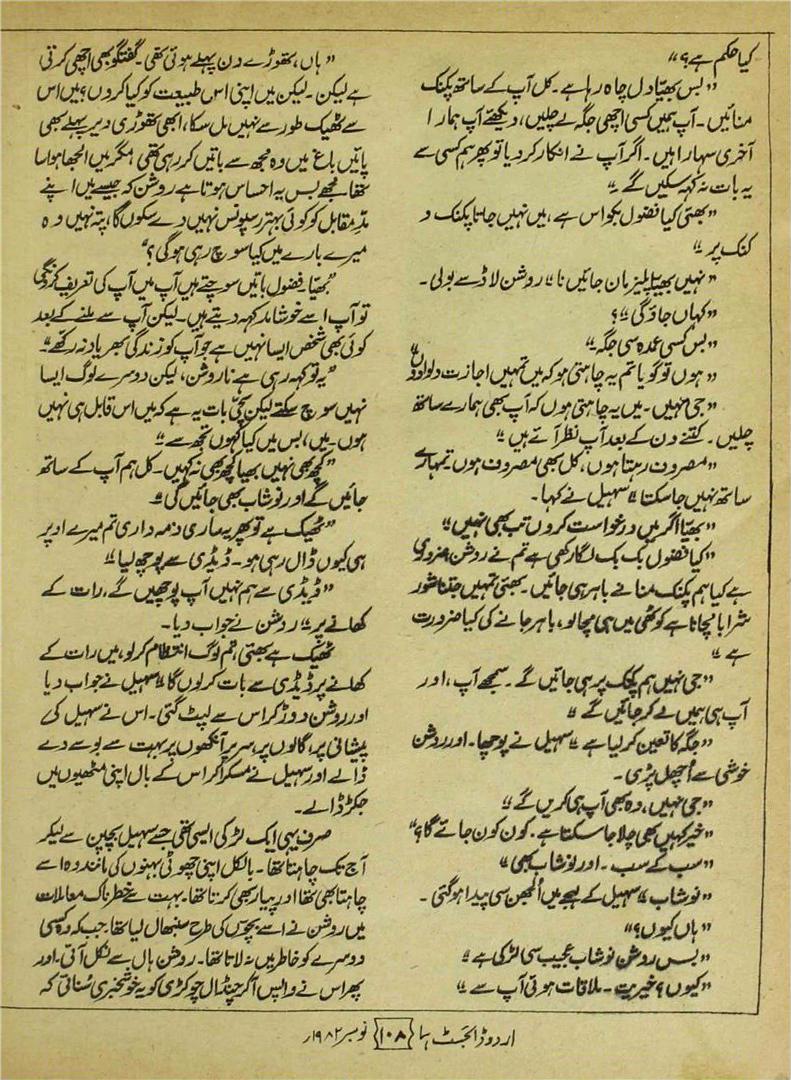 کیا حکم ہے؟"
"بس بھیّا دل چاہ رہا ہے۔ کل آپ کے ساتھ پکنک
منائیں۔ آپ ہمیں کسی اچھی جگہ لے چلیں، دیکھئے آپ ہمارا
آخری سہارا ہیں۔ اگر آپ نے انکار کر دیا تو پھر ہم کسی سے
یہ بات نہ کہہ سکیں گے۔"
"بھئی کیا فضول بکواس ہے، میں نہیں جاتا پکنک و
کنک پر۔"
"نہیں بھیّا پلیز مان جائیں نا۔" روشن لاڈ سے بولی۔
"کہاں جاؤ گی۔"؟
"بس کسی عمدہ سی جگہ۔"
"ہوں تو گویا تم یہ چاہتی ہو کہ میں تمہیں اجازت دلوا دوں"
"جی نہیں۔ میں یہ چاہتی ہوں کہ آپ بھی ہمارے ساتھ
چلیں۔ کتنے دن کے بعد آپ نظر آئے ہیں۔"
"مصروف رہتا ہوں، کل بھی مصروف ہوں تمہارے
ساتھ نہیں جا سکتا۔" سہیل نے کہا۔
"بھیّا اگر میں درخواست کروں تب بھی نہیں۔"
"کیا فضول بک بک لگا رکھی ہے تم نے روشن ضروری
ہے کیا ہم پکنک منانے باہر ہی جائیں۔ بھئی تمہیں جتنا شور
شرابا مچانا ہے کوٹھی میں ہی مچا لو، باہر جانے کی کیا ضرورت
ہے۔"
"جی نہیں ہم پکنک پر ہی جائیں گے۔ سمجھے آپ، اور
آپ ہی ہمیں لے کر جائیں گے۔"
"جگہ کا تعین کر لیا ہے۔" سہیل نے پوچھا۔ اور روشن
خوشی سے اُچھل پڑی۔
"جی نہیں، وہ بھی آپ ہی کریں گے۔"
"خیر کہیں بھی چلا جا سکتا ہے۔ کون کون جائے گا؟"
"سب کے سب۔ اور نوشاب بھی۔"
"نوشاب۔" سہیل کے لہجے میں اُلجھن سی پیدا ہو گئی۔
"ہاں کیوں؟"
"بس روشن نوشاب عجیب سی لڑکی ہے۔"
"کیوں؟ خیریت۔ ملاقات ہوئی آپ سے۔"
"ہاں، تھوڑے دن پہلے ہوئی تھی۔ گفتگو بھی اچھی کرتی
ہے لیکن۔ لیکن میں اپنی اس طبیعت کو کیا کروں؟ میں اس
سے ٹھیک طور سے نہیں مل سکا، ابھی تھوڑی دیر پہلے بھی
پائیں باغ میں وہ مجھ سے باتیں کر رہی تھی مگر میں الجھا ہوا سا
تھا۔ مجھے بس یہ احساس ہوتا ہے روشن کہ جیسے میں اپنے
مدِّ مقابل کو کوئی بہتر رسپونس نہیں دے سکوں گا، پتہ نہیں وہ
میرے بارے میں کیا سوچ رہی ہوگی؟"
"بھیّا۔ فضول باتیں سوچتے ہیں آپ میں آپ کی تعریف کروں گی
تو آپ اسے خوشامد کہہ دیتے ہیں۔ لیکن آپ سے ملنے کے بعد
کوئی بھی شخص ایسا نہیں ہے جو آپ کو زندگی بھر یاد نہ رکھے۔"
"یہ تو کہہ رہی ہے نا روشن، لیکن دوسرے لوگ ایسا
نہیں سوچ سکتے لیکن سچّی بات یہ ہے کہ میں اس قابل ہی نہیں
ہوں۔ میں، بس میں کیا کہوں تجھ سے۔"
"کچھ بھی نہیں بھیا کچھ بھی نہ کہیں۔ کل ہم آپ کے ساتھ
جائیں گے اور نوشاب بھی جائیں گی۔"
"ٹھیک ہے تو پھر یہ ساری ذمہ داری تم میرے اوپر
ہی کیوں ڈال رہی ہو۔ ڈیڈی سے پوچھ لیا۔"
"ڈیڈی سے ہم نہیں آپ پوچھیں گے، رات کے
کھانے پر۔" روشن نے جواب دیا۔
ٹھیک ہے بھئی، تم لوگ انتظام کر لو، میں رات کے
کھانے پر ڈیڈی سے بات کر لوں گا۔" سہیل نے جواب دیا
اور روشن دوڑ کر اس سے لپٹ گئی۔ اس نے سہیل کی
پیشانی پر، گالوں پر، سر پر آنکھوں پر بہت سے بوسے دے
ڈالے اور سہیل نے مسکرا کر اس کے بال اپنی مٹھیوں میں
جکڑ ڈالے۔
صرف یہی ایک لڑکی ایسی تھی جسے سہیل بچپن سے لیکر
آج تک چاہتا تھا۔ بالکل اپنی چھوٹی بہنوں کی مانند وہ اسے
چاہتا بھی تھا اور پیار بھی کرتا تھا۔ بہت سے خطرناک معاملات
میں روشن نے اسے بچوں کی طرح سنبھال لیا تھا۔ جب کہ وہ کسی
دوسرے کو خاطر میں نہ لاتا تھا۔ روشن ہاں سے نکل آئی۔ اور
پھر اس نے واپس آ کر چنڈال چوکڑی کو یہ خوشخبری سُنائی کہ
اردو ڈائجسٹ ہما {۱۰۸} نومبر ۱۹۸۲ء